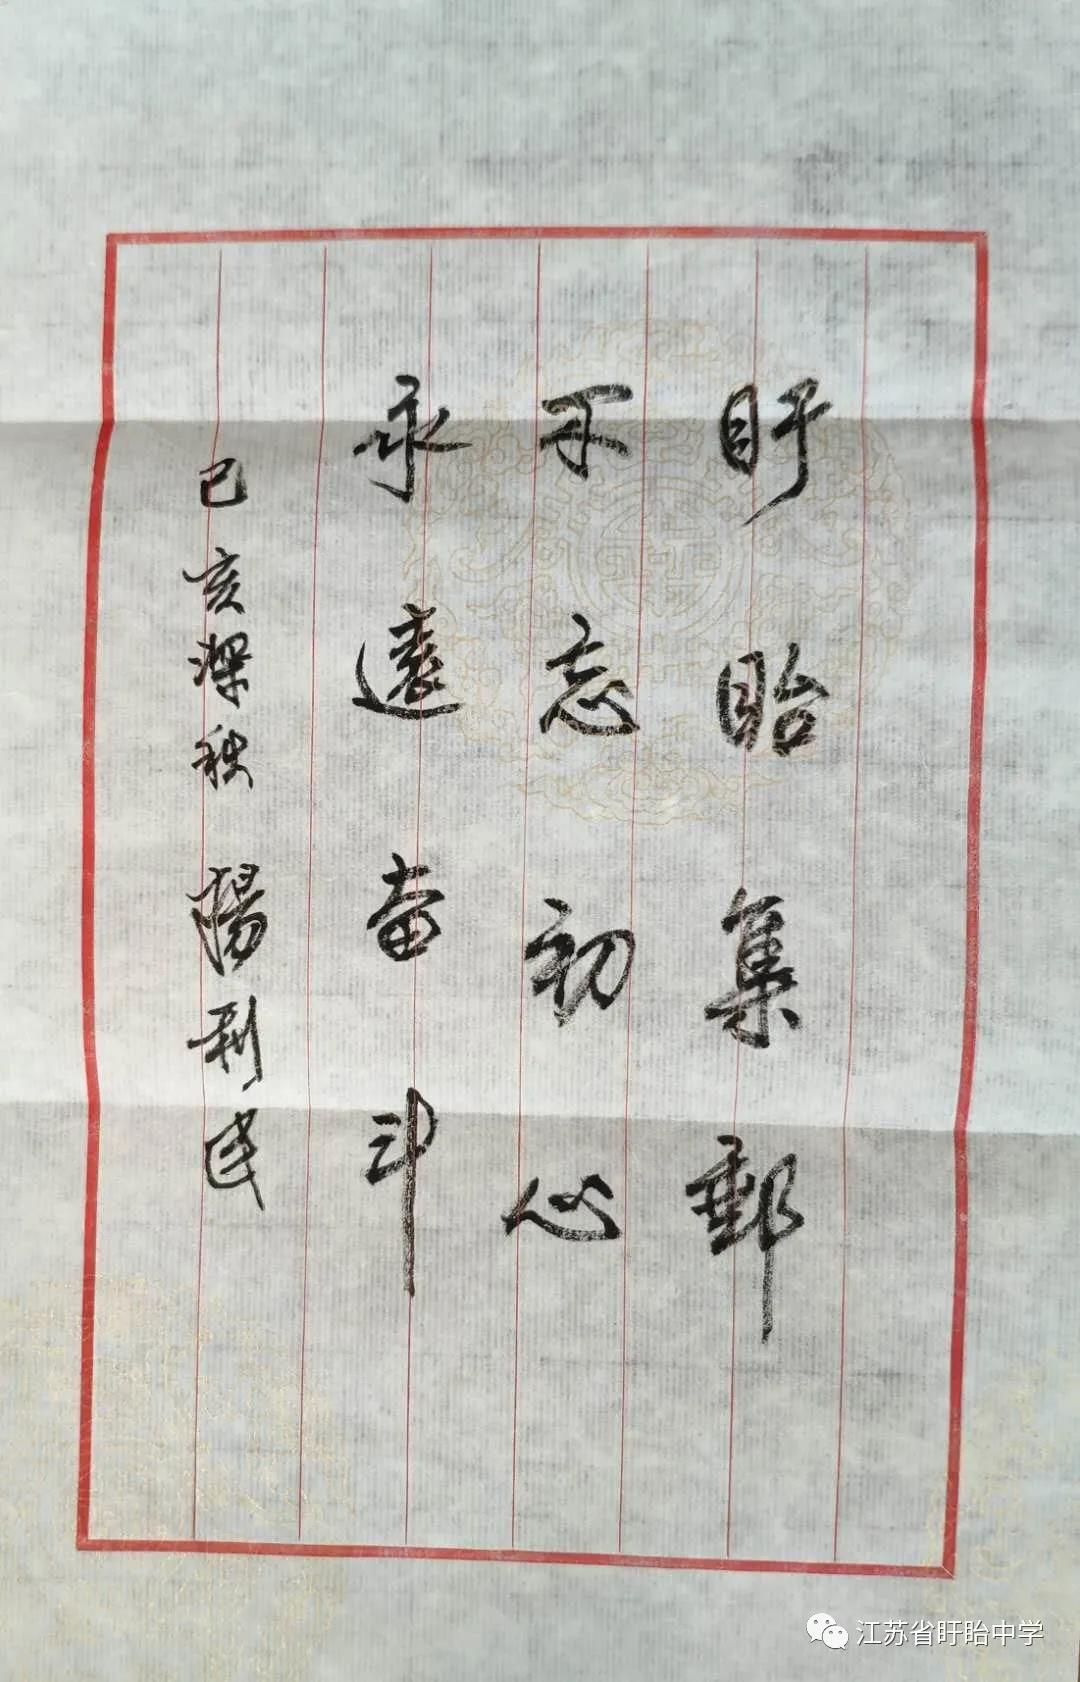 盱眙集郵
不忘初心
永遠奋斗
己亥深秋 楊利民
江苏省盱眙中学